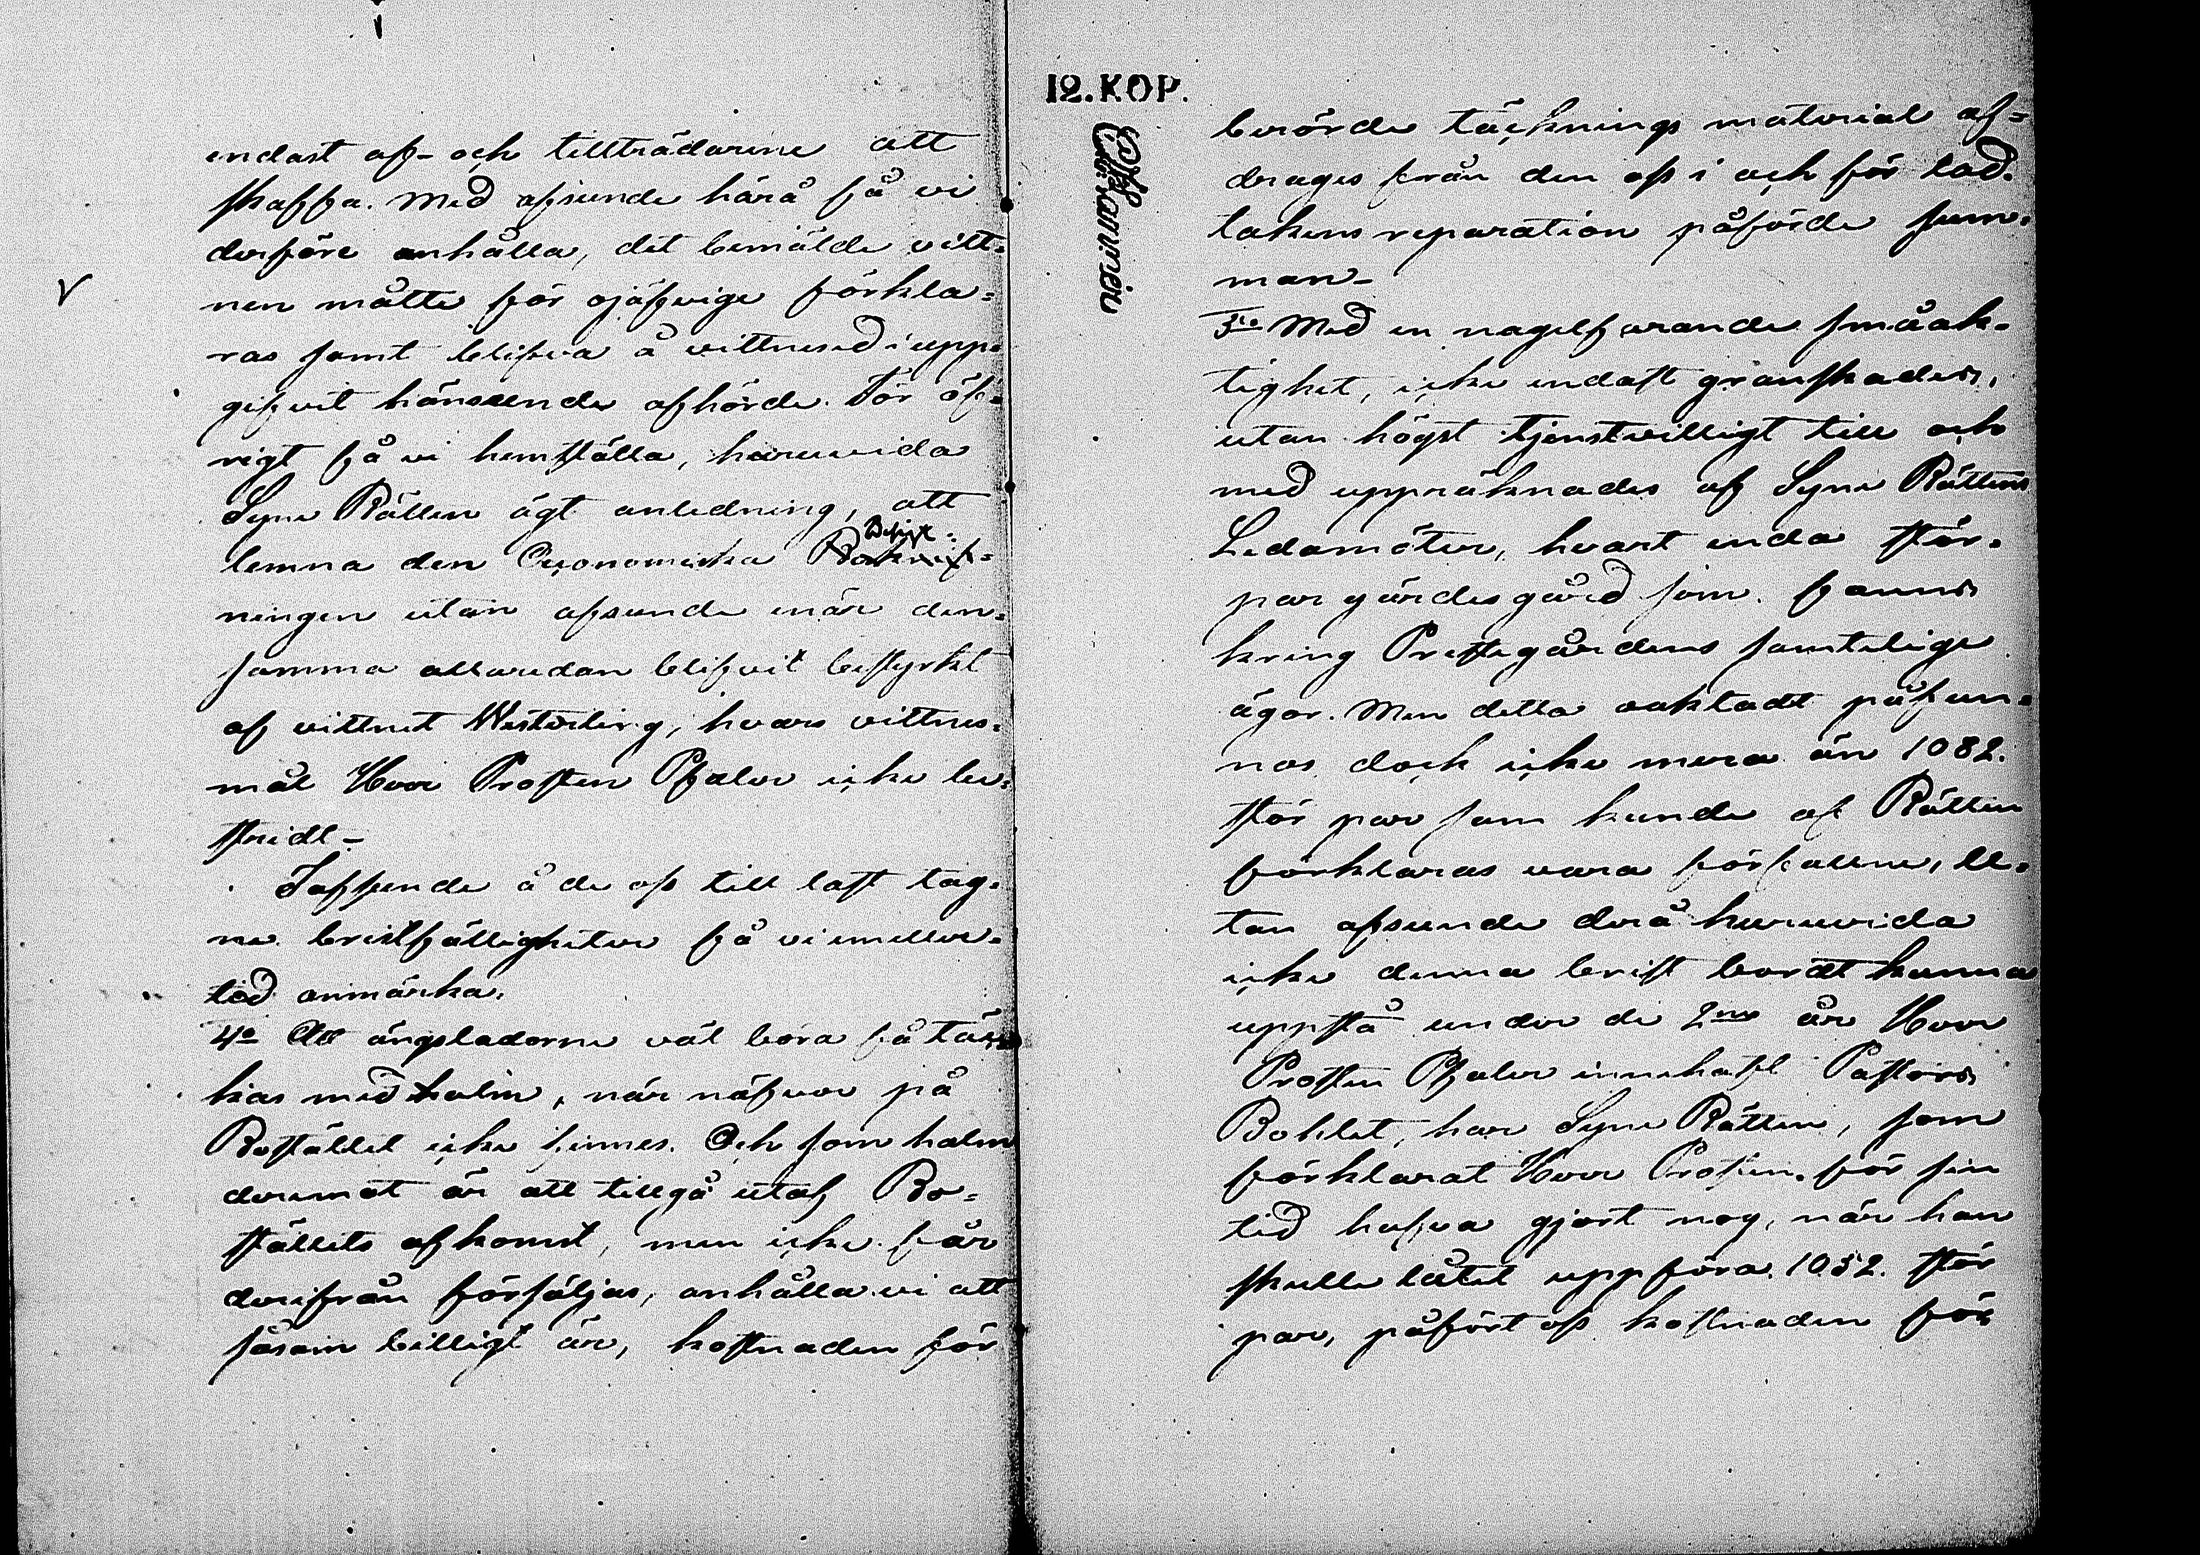 endast af- och tillträdarene att
skaffa. Med afseende härå få vi
derföre anhålla, det bemälde vitt-
nen måtte för ojäfvige förkla-
ras samt blifva å vittnesed i upp-
gifvit hänseende afhörde. För öf-
rigt få vi hemställa, huruvida
Syne Rätten ägt anledning, att
lemna den Oeconomiska Beskrif-
ningen utan afseende enär den-
samma allaredan blifvit bestyrkt
af vittnet Westerling, hvars vittnes-
mål Herr Prosten Pfaler icke be-
stridt -
I afseende å de oss till last tag-
ne bristfälligheter få vi emeller-
tid anmärka.
4o Att ängsladorne väl böra få täc-
kas med halm, när näfver på
Boställel icke finnes. Och som halm
deremot är att tillgå utaf Bo-
ställets afkomst, men icke får
derifrån försäljas, anhålla vi att
såsom billigt är, kostnaden för
12.KOP.
berörde täcknings material af-
drages från den oss i och för lad-
takens reparation påförde sum-
man -
5o Med en nagelfarande småak-
tighet, icke endast granskades,
utan högst tjenstvilligt till och
med uppräknades af Syne Rättens
Ledamöter, hvart enda stör-
par gärdesgård som fanns
kring Prestegårdens samtelige
ägor. Men detta oaktadt påfun-
nos dock icke mera än 1082.
stör par som kunde af Rätten
förklaras vara förfallne, U-
tan afseende derå huruvida
icke denna brist bordt kunna
uppstå under de 2ne år Herr
Prosten Pfaler innehaft Pastors
Bohlet, har Syne Rätten, som
förklarat Herr Prosten för sin
tid hafva gjort nog, när han
skulle låtit uppföra 1052. stör
par, påfört oss kostnaden för